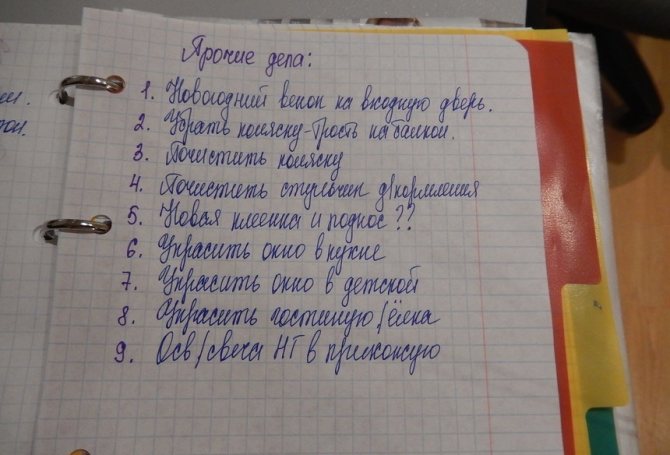 Прочие дела:
1. Новогодний венок на входную дверь.
2. Убрать коляску-трость на балкон.
3. Почистить коляску
4. Почистить стульчик д/кормления
5. Новая клеенка и поднос ??
6. Украсить окно в кухне
7. Украсить окно в детской
8. Украсить гостиную/ёлка
9. Осв/свеча НГ в прихожую